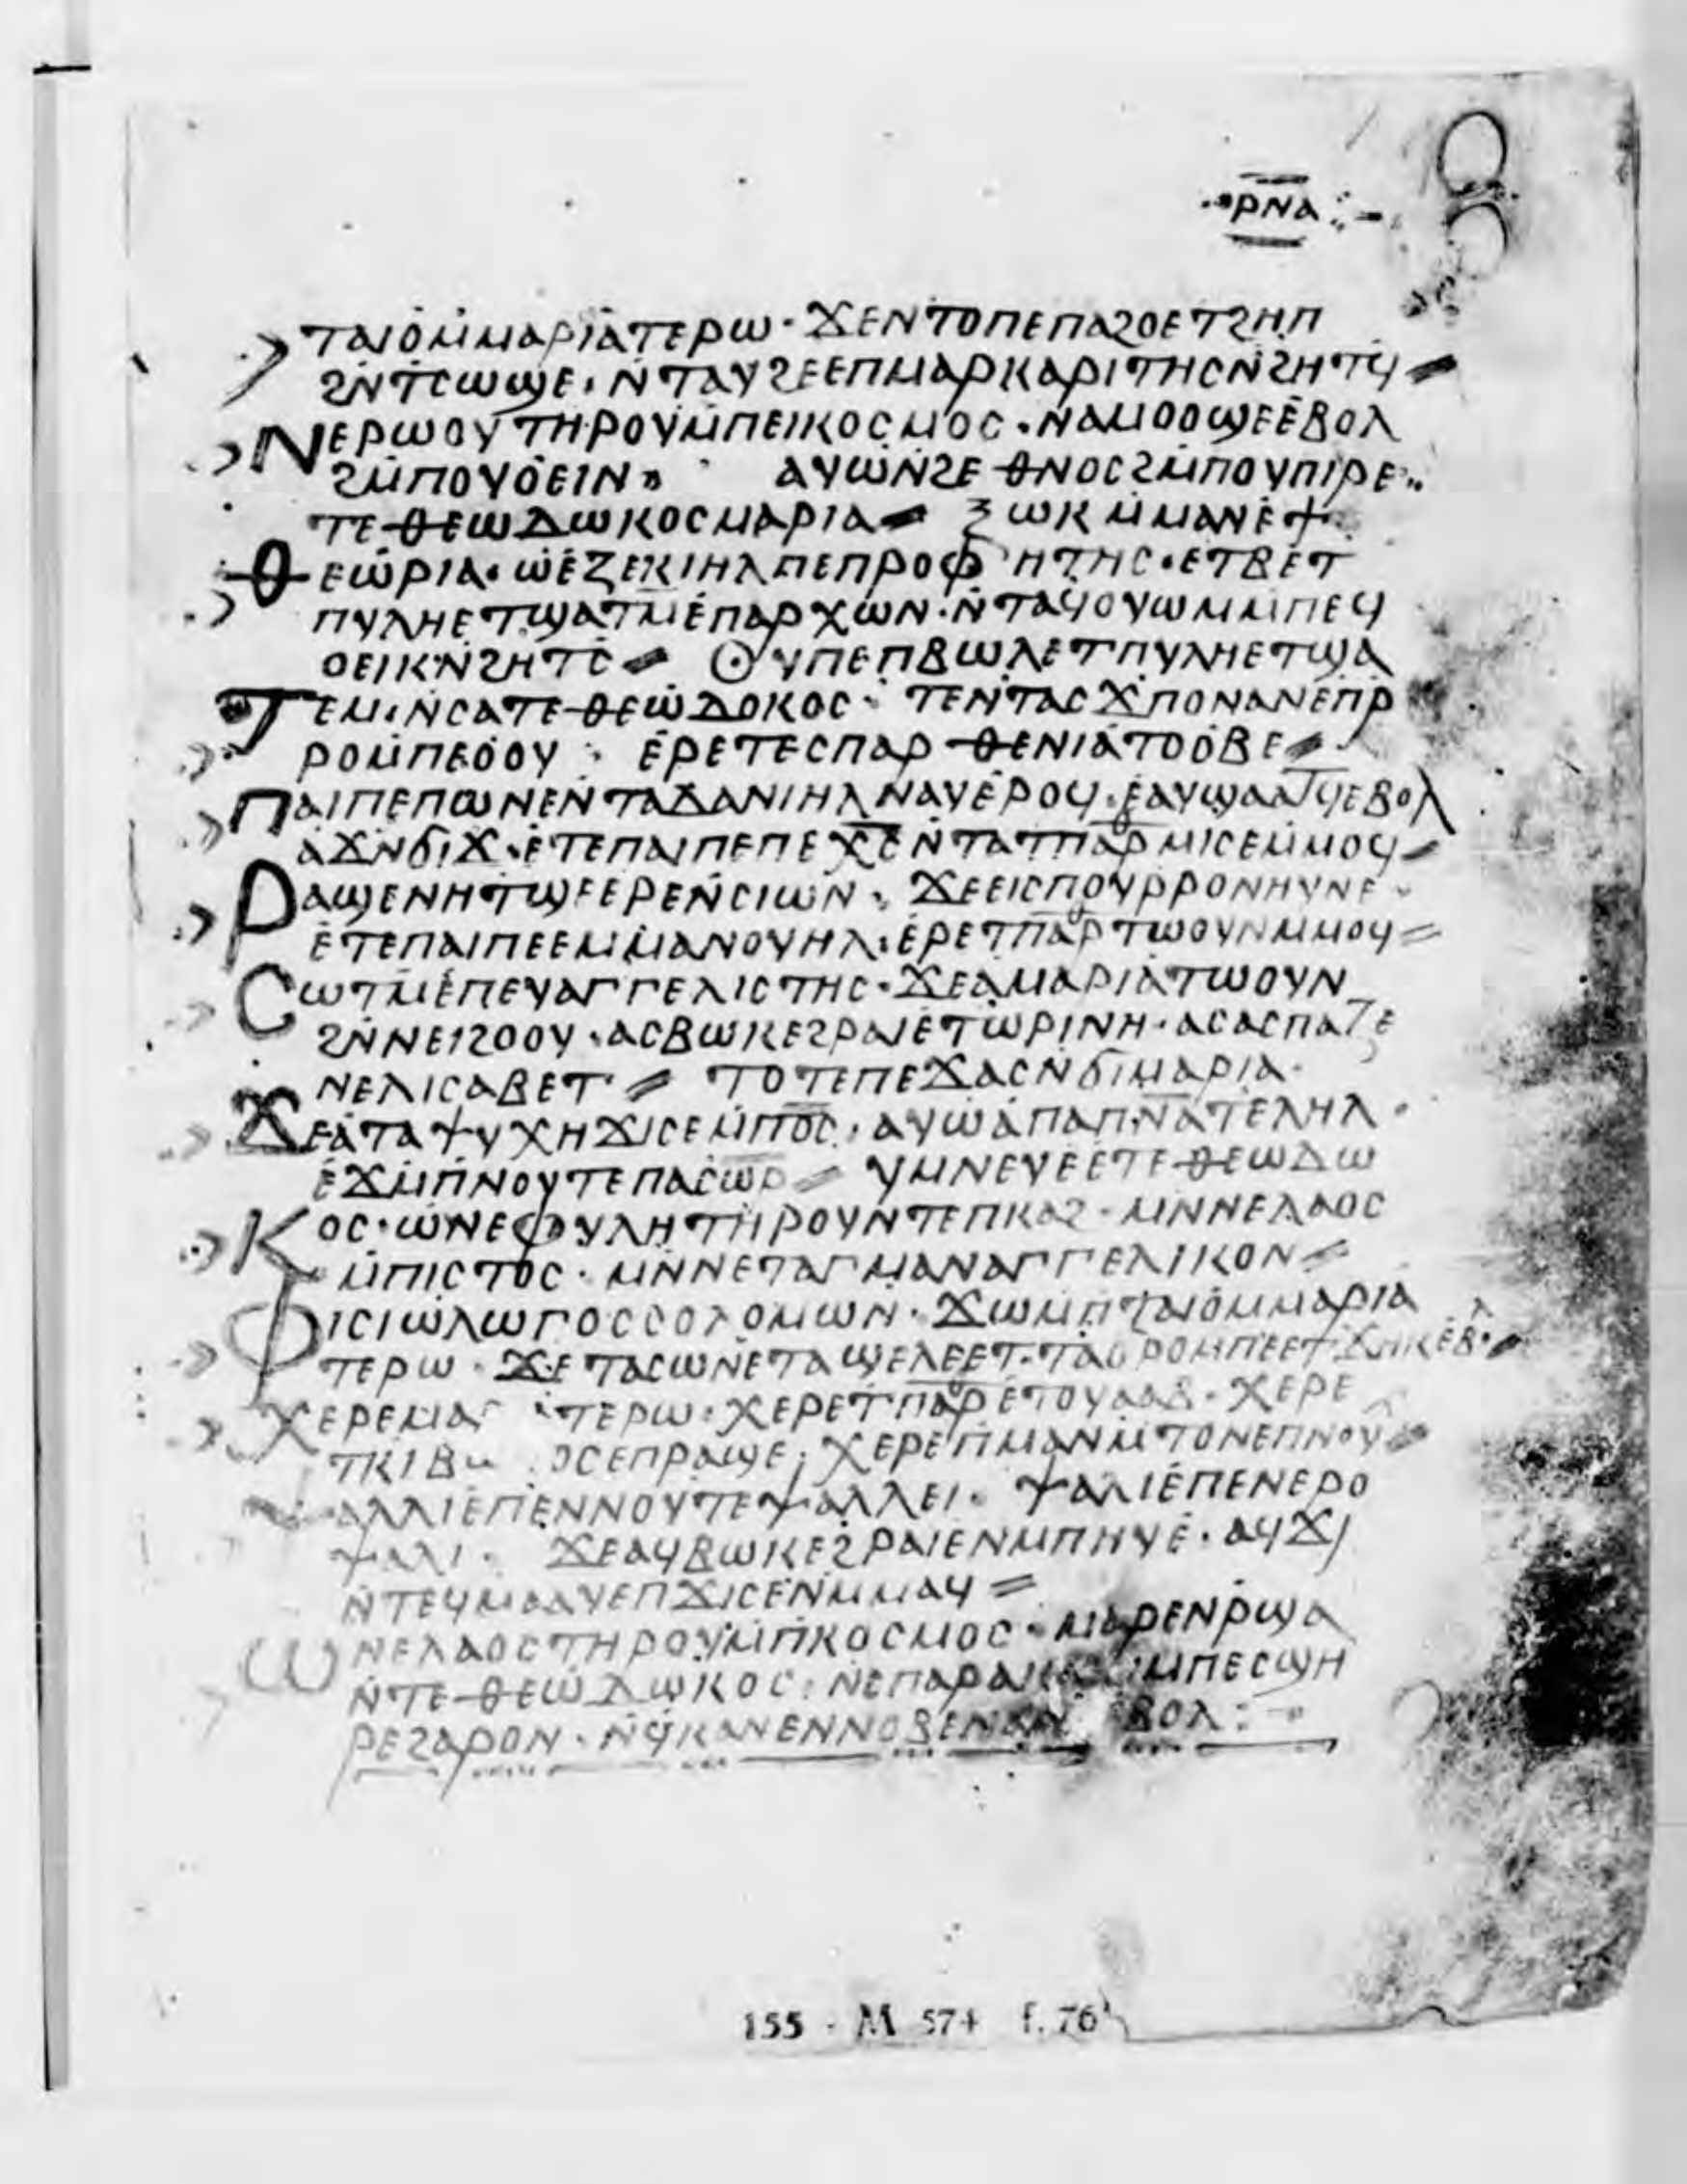 ⲣⲛⲁ
ⲧⲁⲓⲟⲙ̇ⲙⲁⲣⲓⲁⲧⲉⲣⲱ· ϫⲉⲛⲧⲟⲡⲉⲡⲁϩⲟⲉⲧϩⲏⲡ
ϩⲛ̇ⲧⲥⲱϣⲉ· ⲛ̇ⲧⲁⲩϩⲉⲉⲡⲙⲁⲣⲕⲁⲣⲓⲧⲏⲥⲛ̇ϩⲏⲧϥ
ⲛⲉⲣⲱⲟⲩⲧⲏⲣⲟⲩⲙ̇ⲡⲉⲓⲕⲟⲥⲙⲟⲥ· ⲛⲁⲙⲟⲟϣⲉⲉ̇ⲃⲟⲗ
ϩⲙ̇ⲡⲟⲩⲟ̇ⲉⲓⲛ ⲁⲩⲱⲛ̇ϩⲉⲑⲛⲟⲥϩⲙ̇ⲡⲟⲩⲡⲓⲣⲉ
ⲧⲉⲑⲉⲱⲇⲱⲕⲟⲥⲙⲁⲣⲓⲁ ⲝⲱⲕⲙ̇ⲙⲁⲛⲉ̇ϯ
ⲑⲉⲱ̇ⲣⲓⲁ· ⲱ̇ⲉ̇ⲍⲉⲕⲓⲏⲗⲡⲉⲡⲣⲟⲫⲏⲧⲏⲥ· ⲉⲧⲃⲉⲧ
ⲡⲩⲗⲏⲉⲧϣⲁⲧⲙ̇ⲉ̇ⲡⲁⲣⲭⲱⲛ· ⲛ̇ⲧⲁϥⲟⲩⲱⲙⲙ̇ⲡⲉϥ
ⲟⲉⲓⲕⲛ̇ϩⲏⲧⲥ̇ ⲟⲩⲡⲉⲡⲃⲱⲗⲉⲧⲡⲩⲗⲏⲉⲧϣⲁ
ⲧⲉⲙ· ⲛ̇ⲥⲁⲧⲉⲑⲉⲱ̇ⲇⲟⲕⲟⲥ· ⲧⲉⲛⲧⲁⲥϫⲡⲟⲛⲁⲛⲉ̇ⲡⲣ
ⲣⲟⲙ̇ⲡⲉⲟ̇ⲟⲩ· ⲉ̇ⲣⲉⲧⲉⲥⲡⲁⲣⲑⲉⲛⲓⲁ̇ⲧⲟⲟ̇ⲃⲉ
ⲡⲁⲓⲡⲉⲡⲱⲛⲉⲛ̇ⲧⲁⲇⲁⲛⲓⲏⲗⲛⲁⲩⲉ̇ⲣⲟϥ· ⲉ̇ⲁⲩϣⲁⲁⲧϥⲉⲃⲟⲗ
ⲁ̇ϫⲛ̇ϭⲓϫ· ⲉ̇ⲧⲉⲡⲁⲓⲡⲉⲡⲉⲭ̅ⲥ̅ⲛ̇ⲧⲁⲧⲡⲁⲣ̅ⲙⲓⲥⲉⲙ̇ⲙⲟϥ
ⲣⲁϣⲉⲛⲏⲧⲛ̇ϣⲉⲉⲣⲉⲛ̇ⲥⲓⲱⲛ· ϫⲉⲉⲓⲥⲡⲟⲩⲣⲣⲟⲛⲏⲩⲛⲉ
ⲉ̇ⲧⲉⲡⲁⲓⲡⲉⲉⲙⲙⲁⲛⲟⲩⲏⲗ· ⲉ̇ⲣⲉⲧⲡⲁⲣ̅ⲧⲱⲟⲩⲛⲙ̇ⲙⲟϥ
ⲥⲱⲧⲙ̇ⲉ̇ⲡⲉⲩⲁⲅⲅⲉⲗⲓⲥⲧⲏⲥ· ϫⲉⲁⲙⲁⲣⲓⲁ̇ⲧⲱⲟⲩⲛ
ϩⲛ̇ⲛⲉⲓϩⲟⲟⲩ· ⲁⲥⲃⲱⲕⲉϩⲣⲁⲓⲉ̇ⲧⲱⲣⲓⲛⲏ· ⲁⲥⲁⲥⲡⲁⲍⲉ
ⲛⲉⲗⲓⲥⲁⲃⲉⲧ ⲧⲟⲧⲉⲡⲉϫⲁⲥⲛ̇ϭⲓⲙⲁⲣⲓⲁ·
ϫⲉⲁ̇ⲧⲁⲯⲩⲭⲏϫⲓⲥⲉⲙ̇ⲡⲟ̅ⲥ̅· ⲁⲩⲱⲁ̇ⲡⲁⲡ̅ⲛ̅ⲁ̅ⲧⲉⲗⲏⲗ·
ⲉ̇ϫⲙ̇ⲡⲛⲟⲩⲧⲉⲡⲁⲥⲱ̅ⲣ̅ ⲩⲙⲛⲉⲩⲉⲉⲧⲉⲑⲉⲱⲇⲱ
ⲕⲟⲥ· ⲱ̇ⲛⲉⲫⲩⲗⲏⲧⲏⲣⲟⲩⲛ̇ⲧⲉⲡⲕⲁϩ· ⲙⲛ̇ⲛⲉⲗⲁⲟⲥ
ⲙ̇ⲡⲓⲥⲧⲟⲥ· ⲙⲛ̇ⲛⲉⲧⲁⲅⲙⲁⲛⲁⲅⲅⲉⲗⲓⲕⲟⲛ
ⲫⲓⲥⲓⲱⲗⲱⲅⲟⲥⲥⲟⲗⲟⲙⲱⲛ· ϫⲱⲙ̇ⲡⲧⲁⲓⲟⲙ̇ⲙⲁⲣⲓⲁ
ⲧⲉⲣⲱ· ϫⲉⲧⲁⲥⲱⲛⲉⲧⲁϣⲉⲗⲉⲉⲧ· ⲧⲁϭⲣⲟⲙⲡⲉⲉⲧϫⲏⲕⲉⲃⲟⲗ
ⲭⲉⲣⲉⲙⲁⲣ ⲧⲉⲣⲱ· ⲭⲉⲣⲉⲧⲡⲁⲣ̅ⲉ̇ⲧⲟⲩⲁⲁⲃ· ⲭⲉⲣⲉ
ⲧⲕⲓⲃⲱ ⲟⲥⲉⲡⲣⲁϣⲉ· ⲭⲉⲣⲉⲡⲙⲁⲛⲙ̇ⲧⲟⲛⲉⲡⲛⲟⲩ
ⲯⲁⲗⲗⲓⲉ̇ⲡⲉⲛⲛⲟⲩⲧⲉⲯⲁⲗⲗⲉⲓ· ⲯⲁⲗⲓⲉ̇ⲡⲉⲛⲉⲣⲟ
ⲯⲁⲗⲓ· ϫⲉⲁϥⲃⲱⲕⲉϩⲣⲁⲓⲉⲛⲙ̇ⲡⲏⲩⲉ̇· ⲁϥϫⲓ
ⲛ̇ⲧⲉϥⲙⲁⲁⲩⲉⲡϫⲓⲥⲉⲛ̇ⲙⲙⲁϥ
ⲱⲛⲉⲗⲁⲟⲥⲧⲏⲣⲟⲩⲙ̇ⲡⲕⲟⲥⲙⲟⲥ· ⲙⲁⲣⲉⲛⲣ̇ϣⲁ
ⲛ̇ⲧⲉⲑⲉⲱⲇⲱⲕⲟⲥ· ⲛⲉⲡⲁⲣⲁⲕ ⲙ̇ⲡⲉⲥϣⲏ
ⲣⲉϩⲁⲣⲟⲛ· ⲛ̇ϥⲕⲁⲛⲉⲛⲛⲟⲃⲉⲛⲁⲛ ⲃⲟⲗ
155 - M 574 f. 76ᵛ